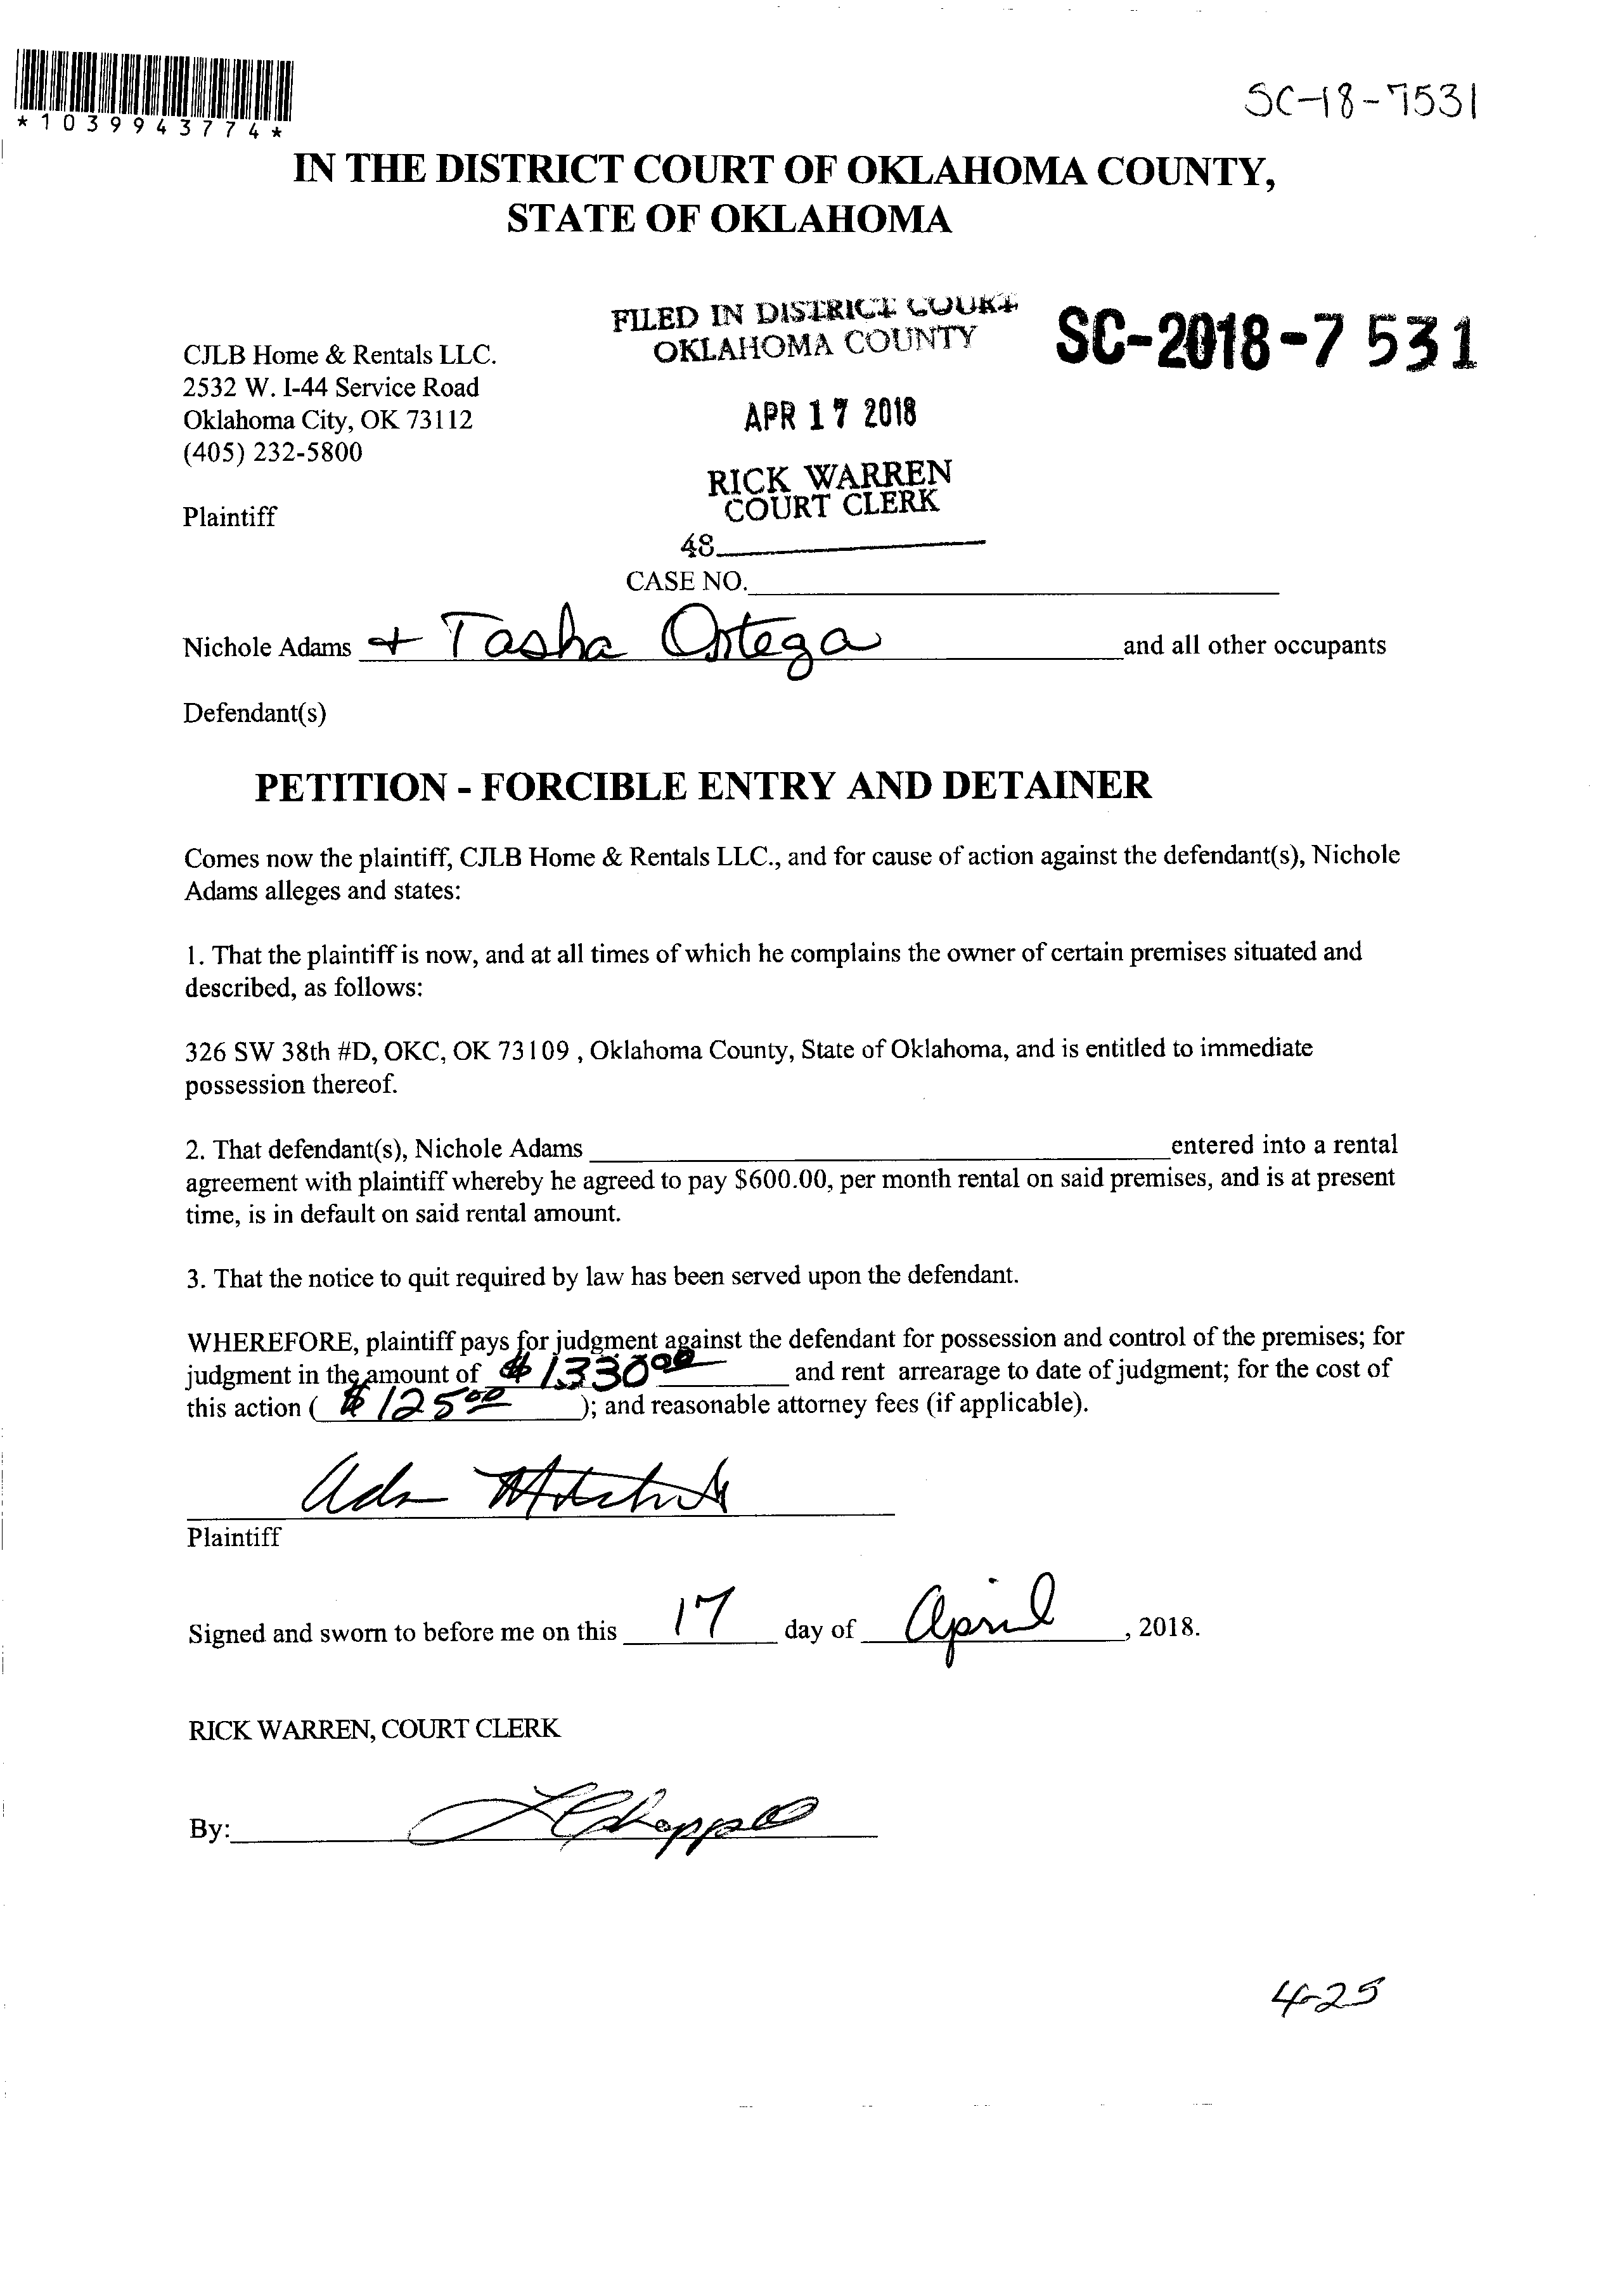 SC-18-7531
*1039943774*
IN THE DISTRICT COURT OF OKLAHOMA COUNTY,
STATE OF OKLAHOMA
FILED IN DISTRICT COURT
OKLAHOMA COUNTY
SC-2018-7531
CJLB Home & Rentals LLC.
2532 W. I-44 Service Road
Oklahoma City, OK 73112
(405) 232-5800
APR 17 2018
RICK WARREN
COURT CLERK
Plaintiff
48
CASE NO.
Nichole Adams + Tasha Ortega and all other occupants
Defendant(s)
PETITION - FORCIBLE ENTRY AND DETAINER
Comes now the plaintiff, CJLB Home & Rentals LLC., and for cause of action against the defendant(s), Nichole
Adams alleges and states:
1. That the plaintiff is now, and at all times of which he complains the owner of certain premises situated and
described, as follows:
326 SW 38th #D, OKC, OK 73109 , Oklahoma County, State of Oklahoma, and is entitled to immediate
possession thereof.
2. That defendant(s), Nichole Adams entered into a rental
agreement with plaintiff whereby he agreed to pay $600.00, per month rental on said premises, and is at present
time, is in default on said rental amount.
3. That the notice to quit required by law has been served upon the defendant.
WHEREFORE, plaintiff pays for judgment against the defendant for possession and control of the premises; for
judgment in the amount of $1330.00 and rent arrearage to date of judgment; for the cost of
this action ( $125.00 ); and reasonable attorney fees (if applicable).
Plaintiff
Signed and sworn to before me on this 17 day of April , 2018.
RICK WARREN, COURT CLERK
By:
4-25